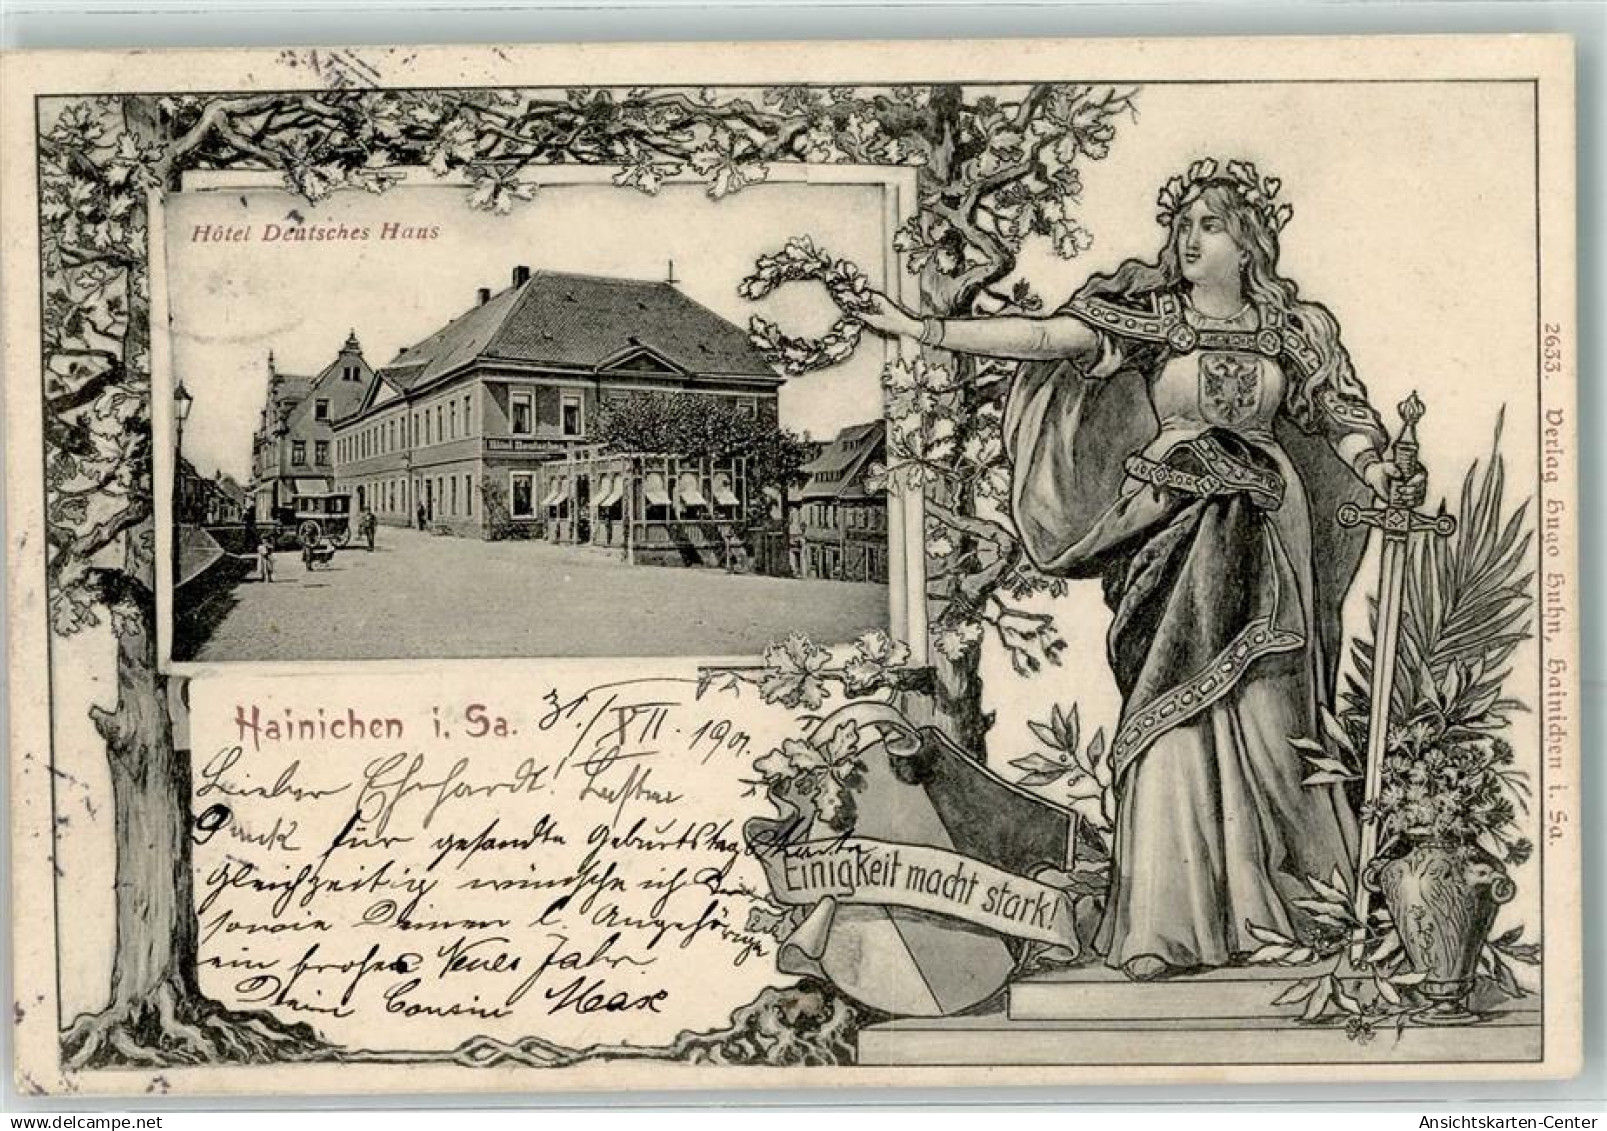 Hôtel Deutsches Haus
Hôtel Deutsches Haus
Hainichen i. Sa.
31./XII. 1901.
Lieber Ehrhardt! Besten
Dank für gesandte Geburtstagskarte
Gleichzeitig wünsche ich Dir
sowie Deinen l. Angehörigen
ein frohes Neues Jahr.
Dein Cousin Max
Einigkeit macht stark!
2633. Verlag Hugo Huhn, Hainichen i. Sa.
Ansichtskarten-Center